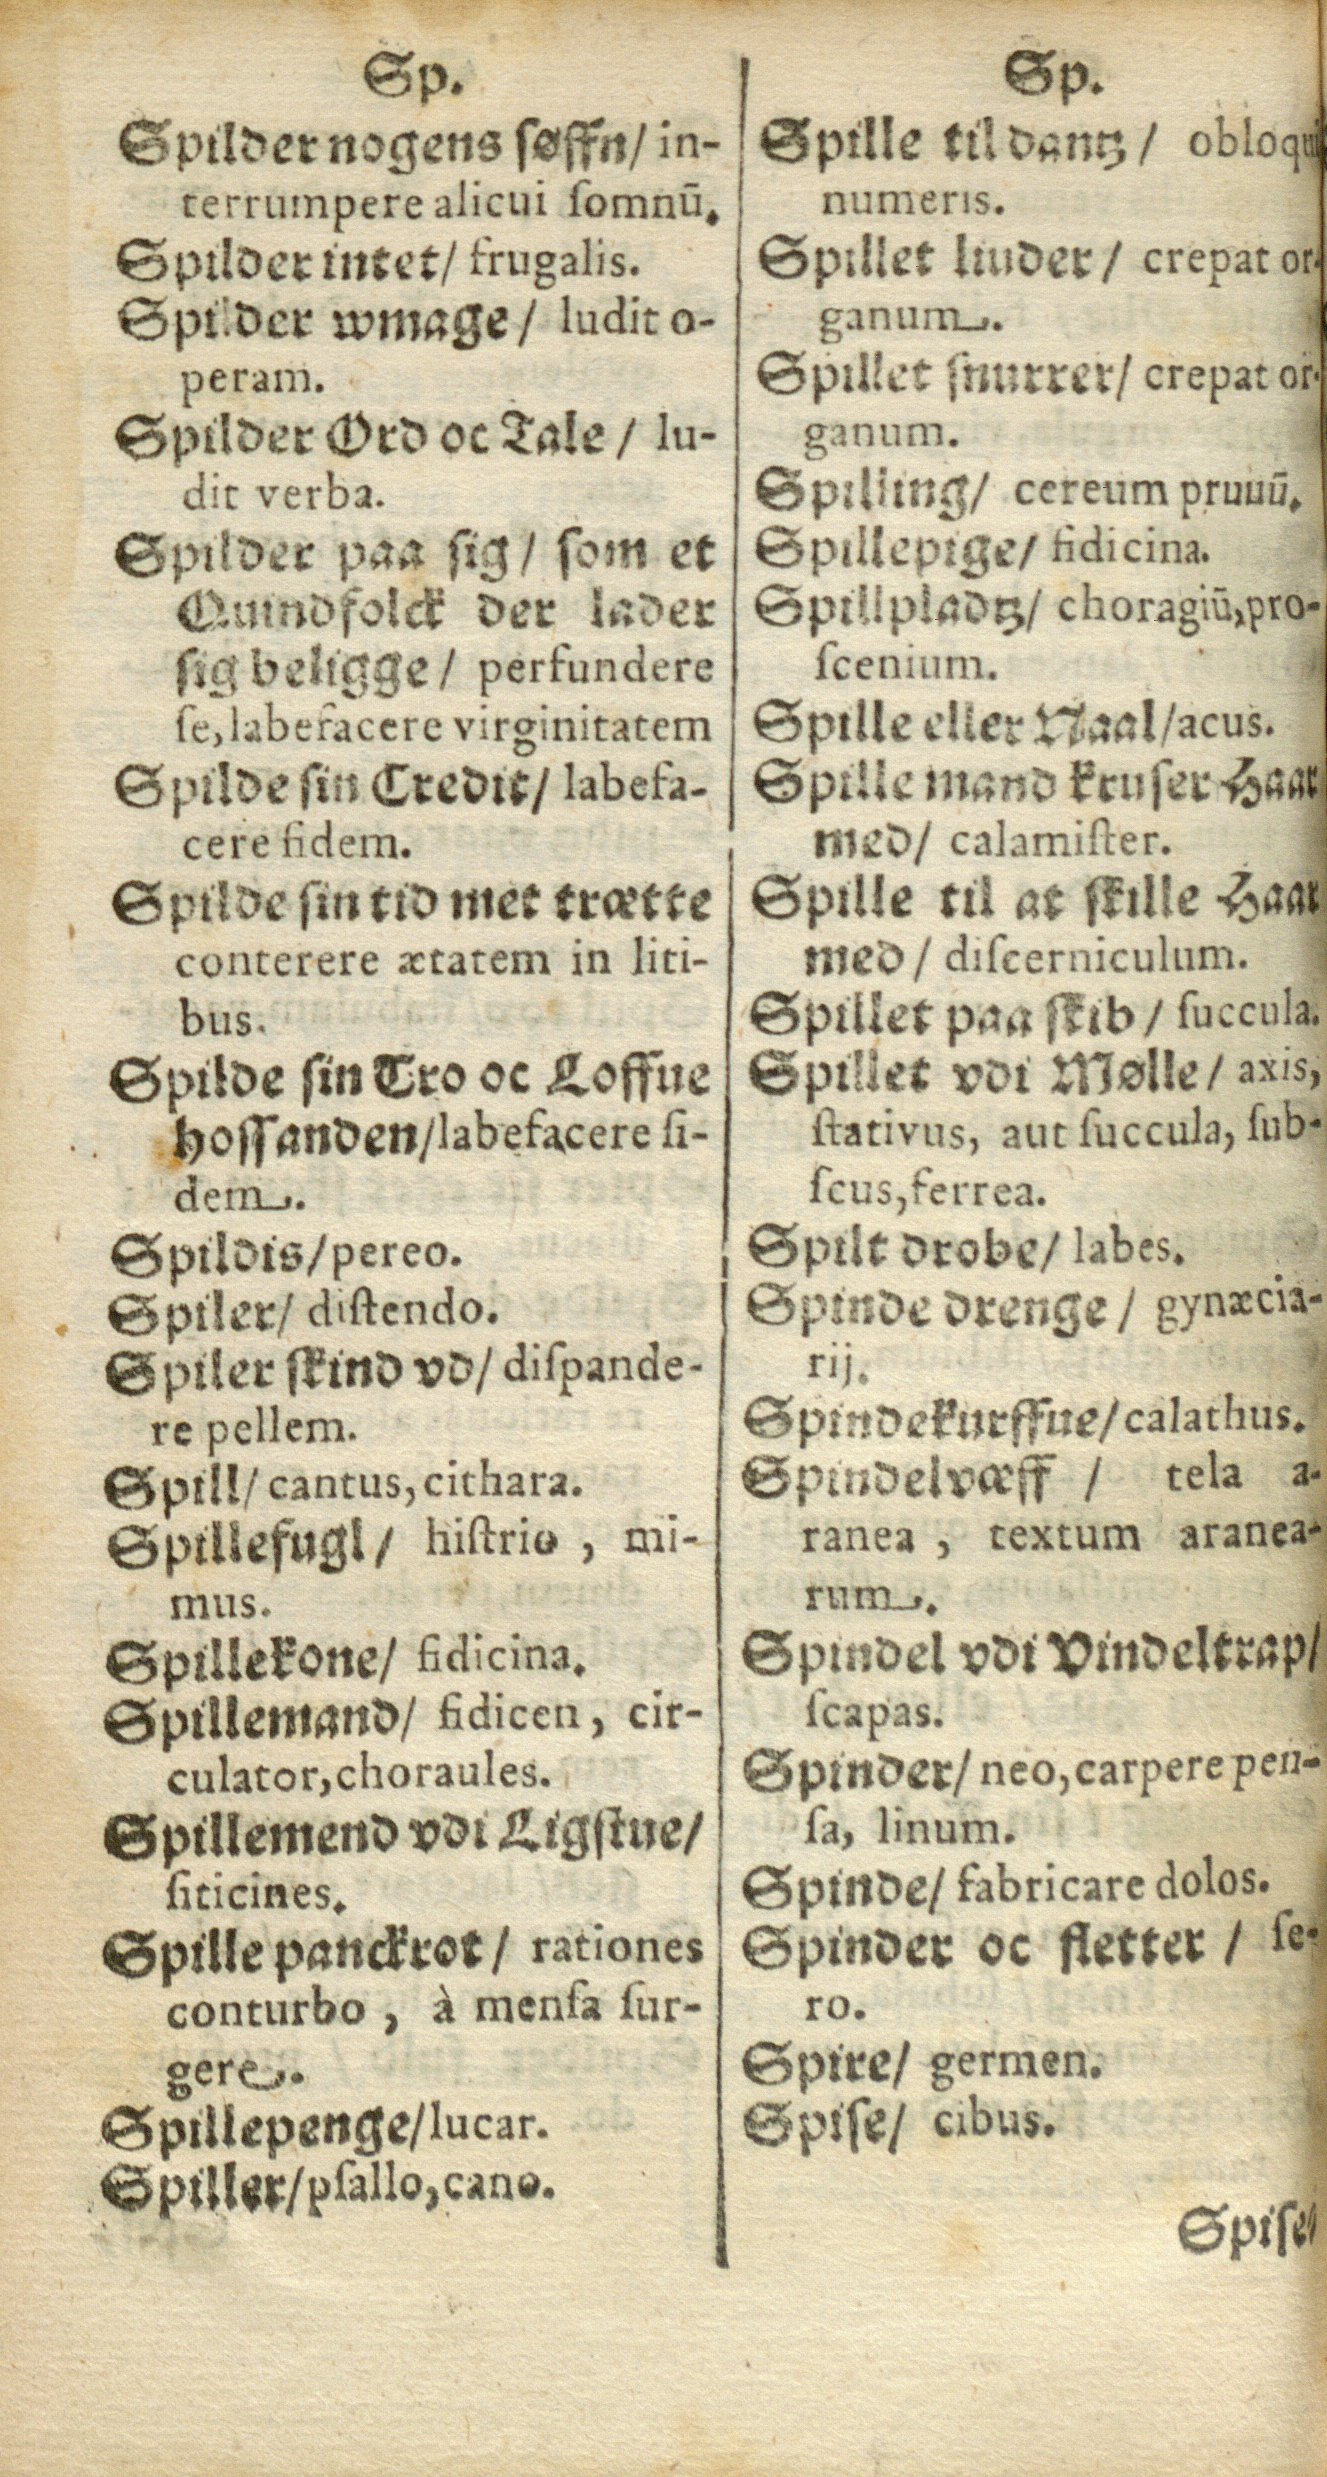 Sp.
Spilder nogens søffn/ in-
terrumpere alicui ſomnū.
Spilder intet/ frugalis.
Spilder wmage/ ludit o-
peram.
Spilder Ord oc Tale/ lu-
dit verba.
Spilder paa sig/ ſom et
Quindfolck der lader
ſig beligge/ perfundere
ſe, labefacere virginitatem
Spilde ſin Credit/ labefa-
cere fidem.
Spilde ſin tid met trætte
conterere ætatem in liti-
bus.
Spilde ſin Tro oc Loffue
hoſſanden/labefacere fi-
dem.
Spildis/pereo.
Spiler/ diſtendo.
Spiler ſkind vd/ diſpande-
re pellem.
Spill/ cantus, cithara.
Spillefugl/ hiſtrio, mi-
mus.
Spillekone/ fidicina.
Spillemand/ fidicen, cir-
culator, choraules.
Spillemend vdi Ligſtue/
ſiticines.
Spille panckrot/ rationes
conturbo, à menſa ſur-
gere.
Spillepenge/lucar.
Spiller/pſallo, cano.
Sp.
Spille til dantz/ obloqui
numeris.
Spillet liuder/ crepat or-
ganum.
Spillet ſnurrer/ crepat or-
ganum.
Spilling/ cereum prunū.
Spillepige/ fidicina.
Spillpladtz/ choragiū, pro-
ſcenium.
Spille eller Naal/acus.
Spille mand kruſer Haar
med/ calamiſter.
Spille til at ſkille Haar
med/ diſcerniculum.
Spillet paa ſkib/ ſuccula.
Spillet vdi Mølle/ axis,
ſtativus, aut ſuccula, ſub-
ſcus, ferrea.
Spilt drobe/ labes.
Spinde drenge/ gynæcia-
rij.
Spindekurffue/calathus.
Spindelvæff/ tela a-
ranea, textum aranea-
rum.
Spindel vdi Vindeltrap/
ſcapas.
Spinder/ neo, carpere pen-
ſa, linum.
Spinde/ fabricare dolos.
Spinder oc fletter/ ſe-
ro.
Spire/ germen.
Spiſe/ cibus.
Spiſe/